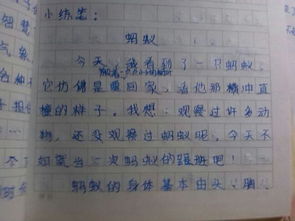 小练笔：
蚂蚁
今天，我看到了一只蚂蚁，
它仿佛是要回家，看他那横冲直
撞的样子。我想：观察过许多动
物，还没观察过蚂蚁呢，今天不
如来当一次蚂蚁的跟班吧！
蚂蚁的身体基本由头、胸、